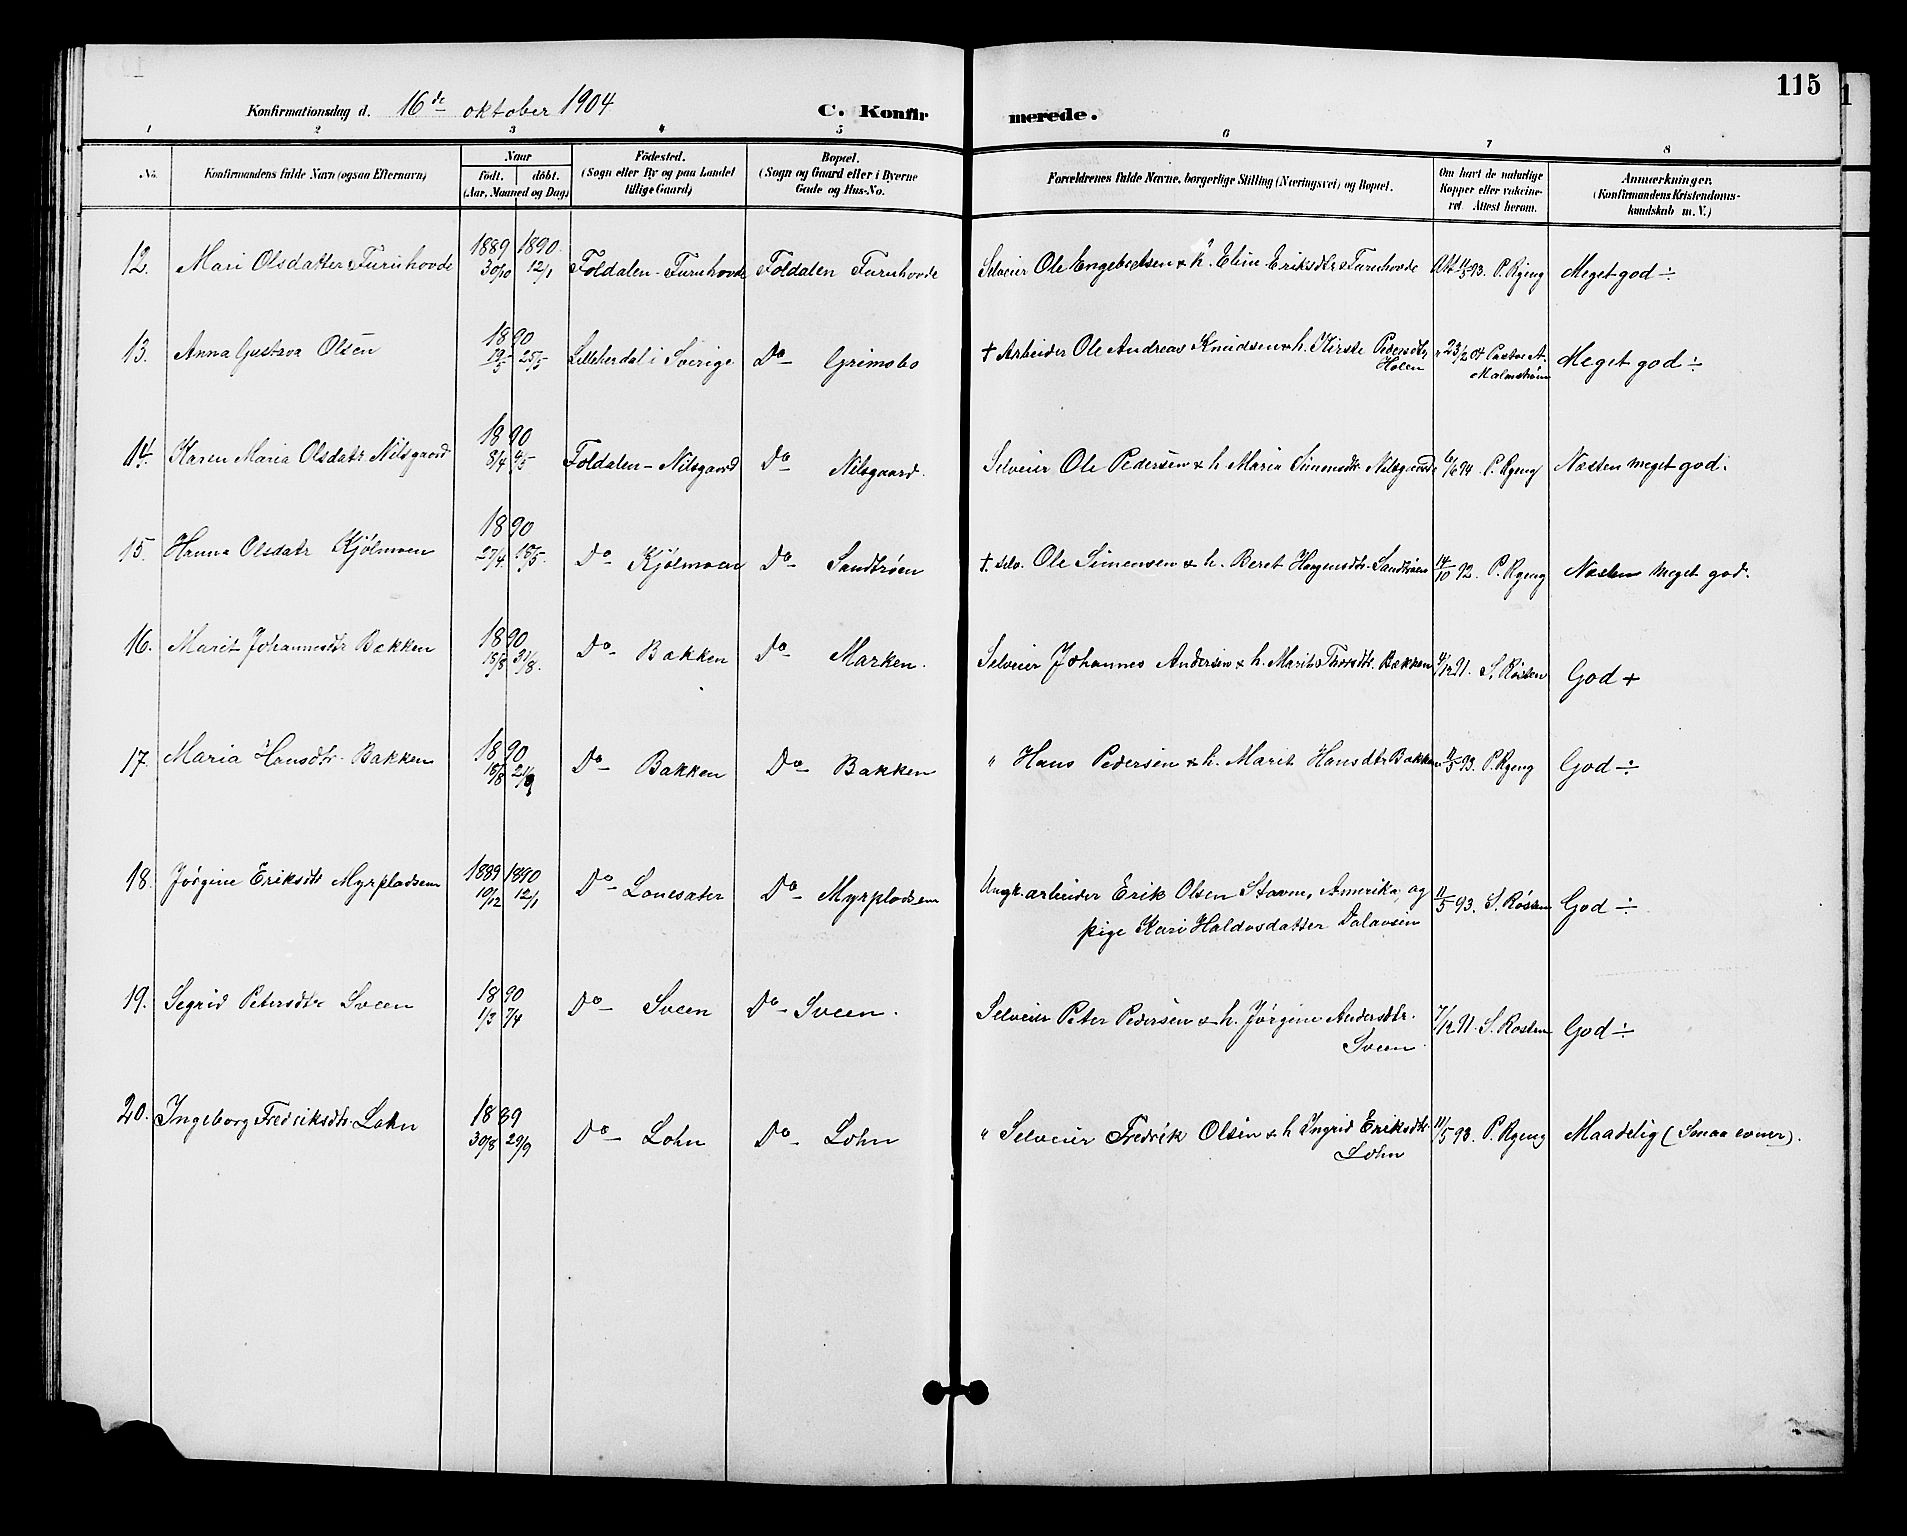 115
Konfirmationsdag d. 16de oktober 1904 C. Konfirmerede.
1 2 3 4 5 6 7 8
No. Konfirmandens fulde Navn (ogsaa Efternavn) Naar født. døbt. (Aar, Maaned og Dag) Födested. (Sogn eller By og paa Landet tillige Gaard) Bopæl. (Sogn og Gaard eller i Byerne Gade og Hus-No. Forældrenes fulde Navne, borgerlige Stilling (Næringsvei) og Bopæl. Om havt de naturlige Kopper eller vakcineret. Attest herom. Anmærkninger. (Konfirmandens Kristendomskundskab m. V.)
12. Mari Olsdatter Furuhovde 1889 30/10 1890 12/1 Foldalen - Furuhovde Foldalen Furuhovde Selveier Ole Engebretsen & h. Eline Eriksdtr Furuhovde Att 11/5 93. P. Ryeng Meget god ÷
13. Anna Gustava Olsen 1890 19/5 25/5 Lilleherdal i Sverige Do Grimsbo † Arbeider Ole Andreas Knudsen & h. Kirste Pedersdtr
Holen " 23/2 04 Pastor A. Malmstrøm Meget god ÷
14. Karen Maria Olsdatr Nilsgaard 1890 8/4 4/5 Foldalen - Nilsgaard Do Nilsgaard. Selveier Ole Pedersen & h Maria Simensdtr Nilsgaard 6/6 94. P. Ryeng Næsten meget god.
15. Hanna Olsdatr Kjölmoen 1890 27/4 18/5 Do Kjölmoen Do Sandtrøen †. Selv. Ole Simensen & h. Beret Haagensdtr. Sandtrøen 14/10 92. P. Ryeng Næsten meget god.
16. Marit Johannesdtr Bakken 1890 18/8 31/8. Do Bakken Do Marken. Selveier Johannes Andersen & h. Marit Thoresdtr. Bakken 4/12 91. S. Røsten God +
17. Maria Hansdtr. Bakken 1890 18/8 21/9 Do Bakken Do Bakken " Hans Pedersen & h. Marit Hansdtr Bakken 11/5 93. P. Ryeng God ÷
18. Jørgine Eriksdtr Myrpladsen 1889 10/12 1890 12/1 Do Lonesæter Do Myrpladsen Ungk. arbeider Erik Olsen Stavne, Amerika, og
pige Kari Haldosdatter Dalaasen 11/5 93. S. Røsten God ÷
19. Segrid Petersdtr Sveen 1890 1/3 7/4 Do Sveen Do Sveen. Selveier Peter Pedersen & h. Jørgine Andersdtr.
Sveen 7/12 91. S. Rosten God ÷
20. Ingeborg Fredriksdtr. Lohn 1889 30/8 29/9 Do Lohn Do Lohn " Selveier Fredrik Olsen & h Ingrid Eriksdtr.
Lohn 11/5 93. P. Ryeng Maadelig (Smaa evner).